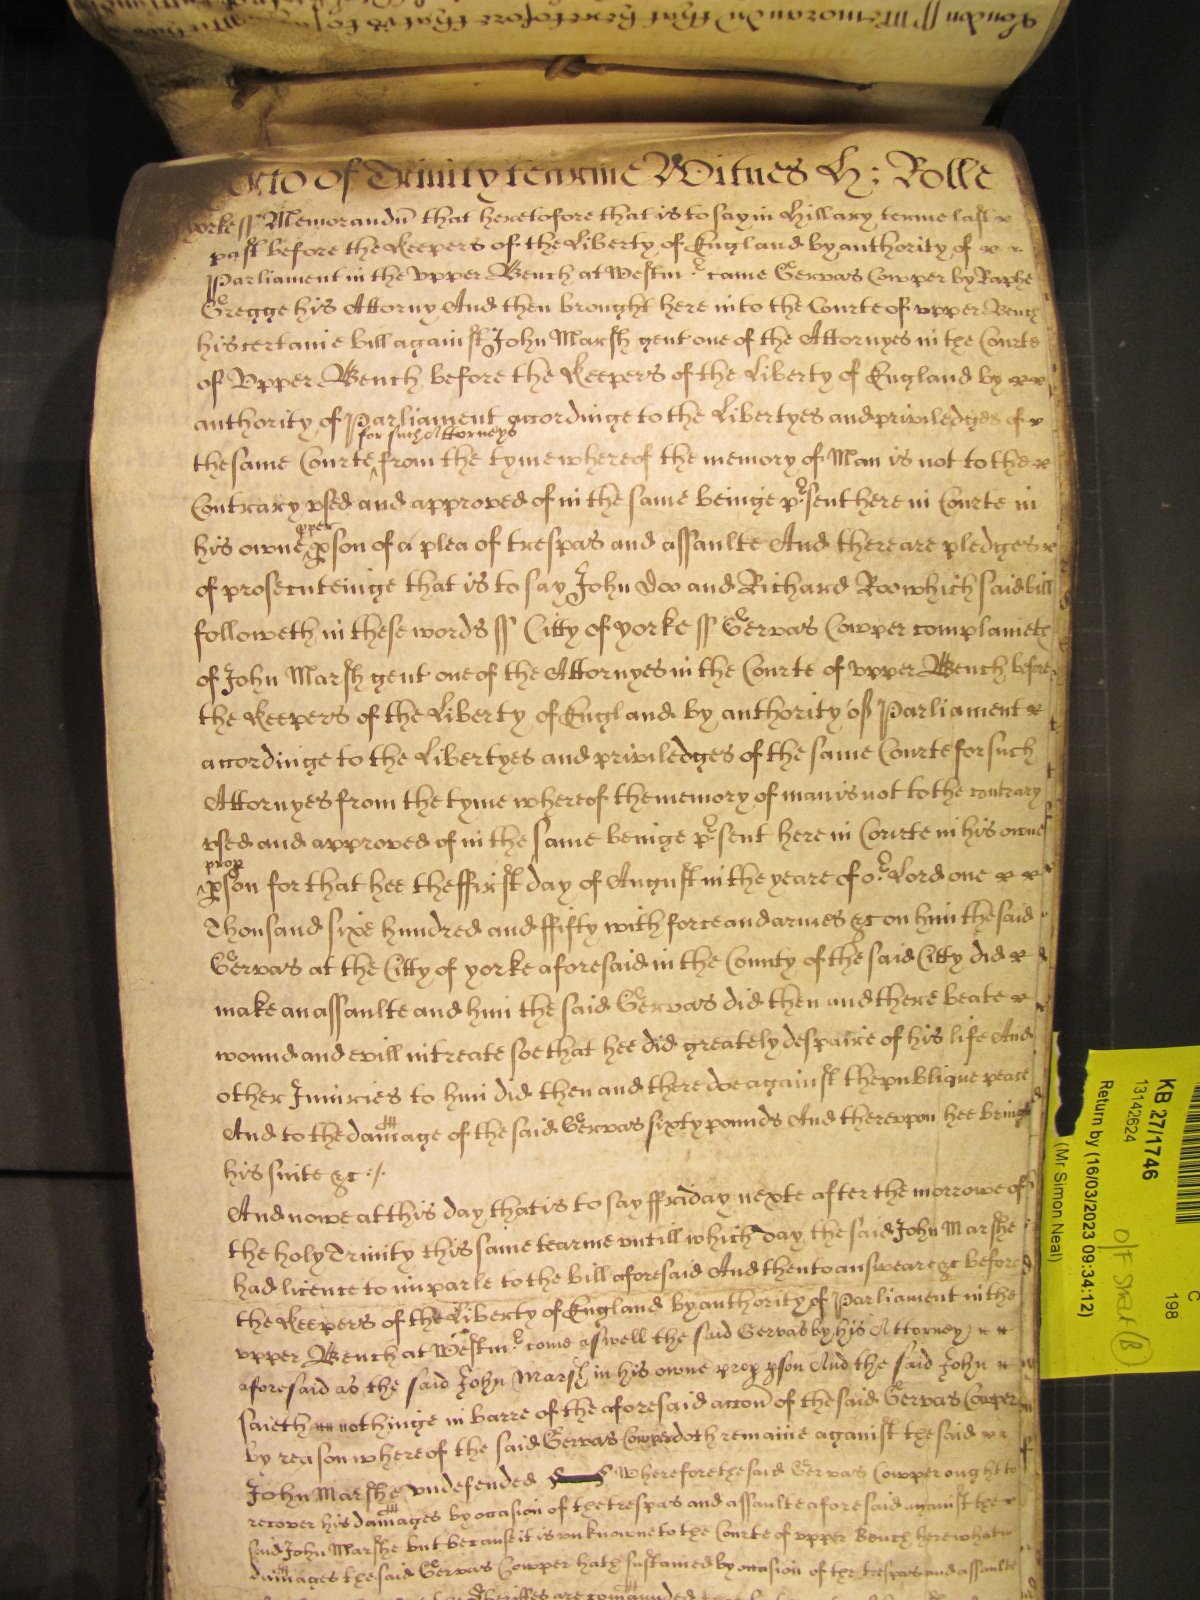 London ss Memorandu that heretofore that is to say in
of Trinity tearme Witnes H: Rolle
Yorke ss Memorandu that heretofore that is to say in Hillary terme last
past before the Keepers of the Liberty of England by authority of
Parliament in the vpper Bench at Westmr came Gervas Cowper by Raphe
Gregge his Attorny And then brought here into the Courte of vpper Bench
his certaine bill against John Marsh gent one of the Attornyes in the Courte
of Vpper Bench before the Keepers of the Liberty of England by
authority of Parliament accordinge to the Libertyes and priviledges of
for such Attorneys
the same Courte ^ from the tyme whereof the memory of Man is not to the
Contrary vsed and approved of in the same beinge pr sent here in Courte in
pper
his owne ^ pson of a plea of trespas and assaulte And there are pledges
of prosecuteinge that is to say John Doo and Richard Roo which said bill
followeth in these words ss Citty of Yorke ss Gervas Cowper complaineth
of John Marsh gent one of the Attornyes in the Courte of vpper Bench before
the Keepers of the Liberty of England by authority of Parliament
accordinge to the Libertyes and priviledges of the same Courte for such
Attornyes from the tyme whereof the memory of man is not to the contrary
vsed and approved of in the same beinge pr sent here in Courte in his owne
prop
^ pson for that hee the ffirst day of August in the yeare of or Lord one
Thousand sixe hundred and ffifty with force and armes &c on him the said
Gervas at the Citty of yorke aforesaid in the County of the said Citty did
make an assaulte and him the said Gervas did then and there beate
wound and evill intreate soe that hee did greately despaire of his life And
other Iniuries to him did then and there doe against the publique peace
And to the damage of the said Gervas sixty pounds And therevpon hee brings
his suite &c ./.
And nowe at this day that is to say ffriday nexte after the morrowe of
the holy Trinity this same tearme vntill which day the said John Marshe
had licence to imparle to the bill aforesaid And then to answeare &c before
the Keepers of the Liberty of England by authority of Parliament in the
vpper Bench at Westmr come aswell the said Gervas by his Attorney
aforesaid as the said John Marsh in his owne prop pson And the said John
saieth nothinge in barre of the aforesaid accon of the said Gervas Cowper
by reason whereof the said Gervas Cowper doth remaine against the said
John Marshe vndefended Wherefore the said Gervas Cowper ought to
recover his damages by occasion of the trespas and assaulte aforesaid against the
said John Marshe but because it is vnknowne to the Courte of vpper Bench here what
damages the said Gervas Cowper hath sustained by occasion of the trespas and assaulte
Sheriffes are comanded
KB 27/1746
13142624
Return by (16/03/2023 09:34:12)
(Mr Simon Neal)
C
198